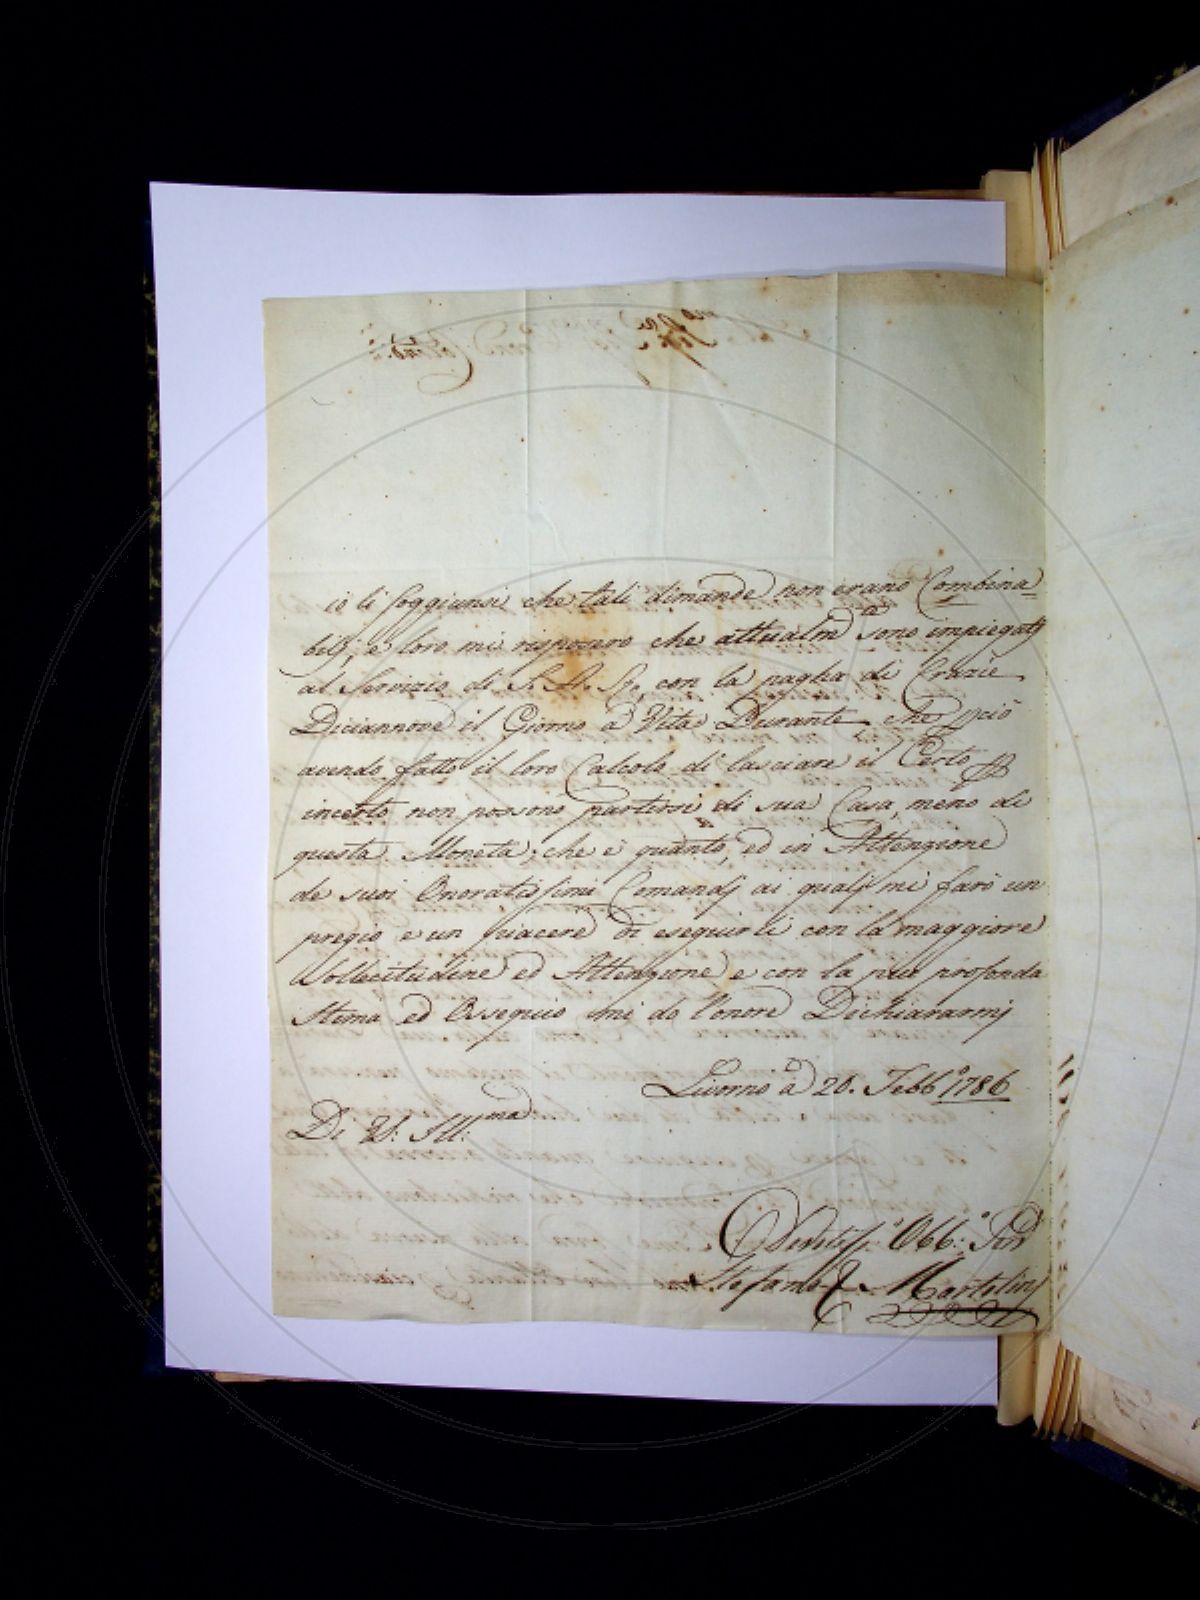 io li soggiunsi che tali dimande non erano Combina=
bilj, e loro mi risposero che attualm.ᵃ sono impiegatj
al Servizio di S. A. R., con la pagha di Crazie
Diciannove il Giorno a Vita Durante che pciò
avendo fatto il loro Calcolo di lasciare il Certo p
incerto non possono partirsi di sua Casa, meno di
questa Moneta; che è quanto, ed in Attenzione
de suoi Onoratissimi Comandj ai qualj mi farò un
pregio e un piacere di eseguirli con la maggiore
Sollecitudine ed Attenzione e con la più profonda
Stima ed Ossequio mi do l'onore Dichiararmj
Livorno a 20. Febb.º 1786
Di V. S. Ill.ᵐᵃ
Devotiss.º Obb.º Ser.ᵉ
Stefano Martelinj